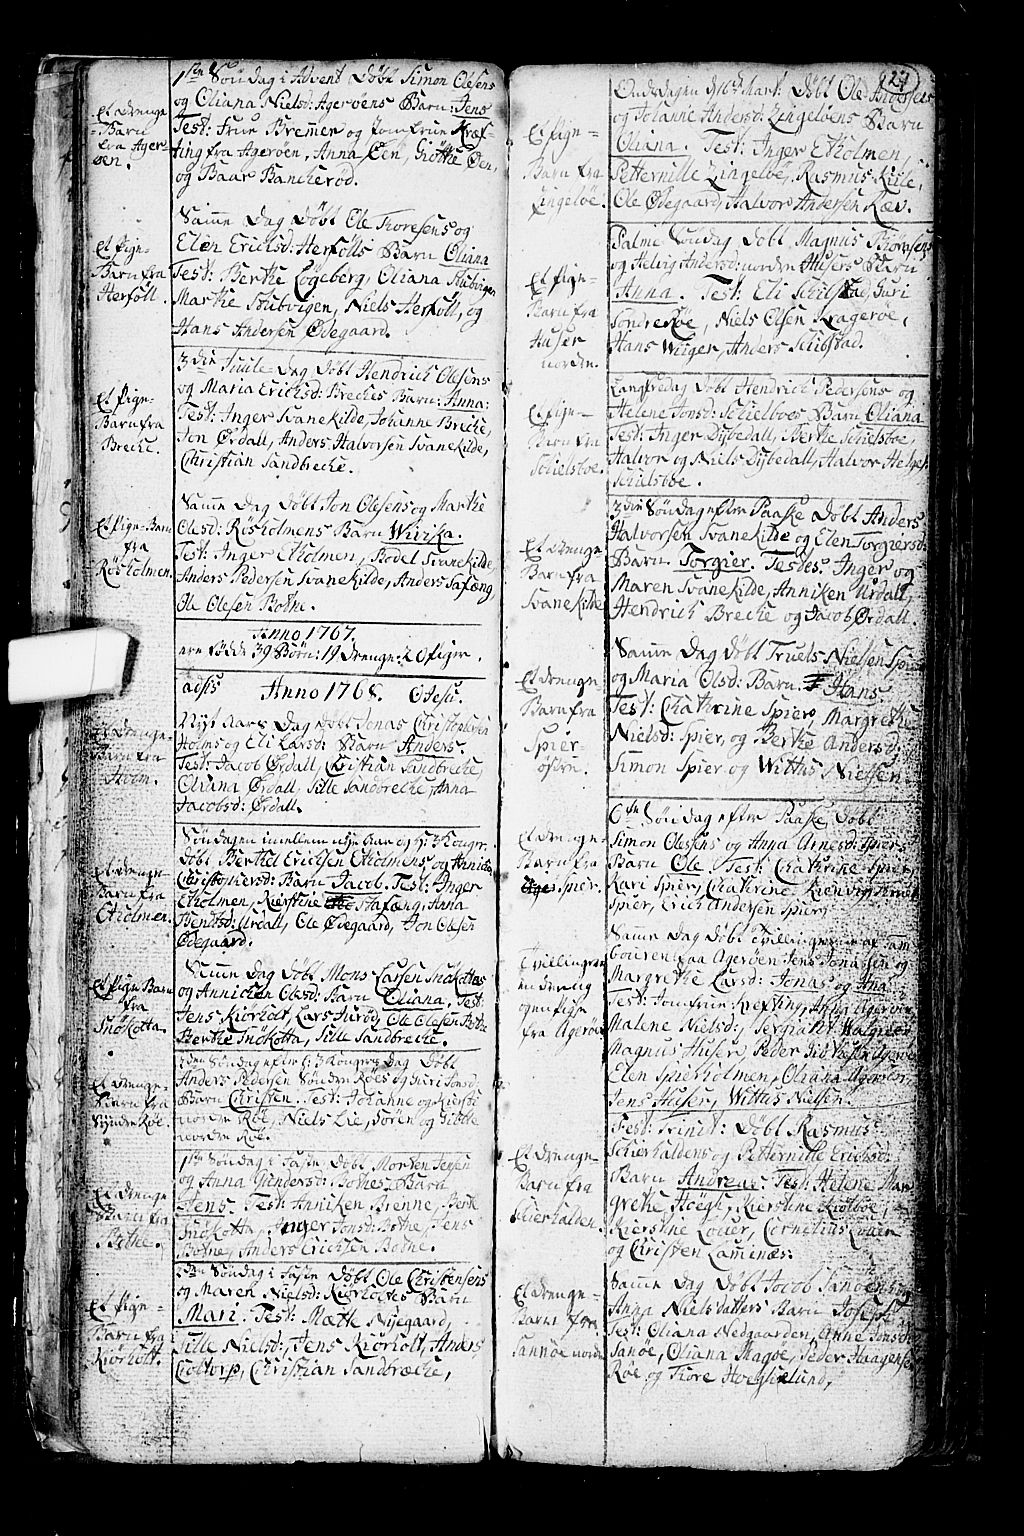 27
Et Drenge
Barn
fra Ager
öen.
1ste Söndag i Advent Döbt Simon Olesens
og Oliana Nielsd: Ageröens Barn: Jens
Test: Frue Bremer og Jomfrue Kræf-
ting fra Ageröen, Anna Öen, Giöthe Öen,
og Baar Banckeröd.
Et Pige-
Barn fra
Herföll.
Samme Dag Döbt Ole Thoresens og
Elen Erichsd: Herfölls Barn Oliana
Test: Berthe Lögeberg, Oliana Stubvigen
Marthe Stubvigen, Niels Herföll, og
Hans Andersen Ödegaard.
Et Pige-
Barn fra
Breche.
3die Juule Dag Döbt Hendrich Olesens
og Maria Erichsd: Breches Barn: Anna:
Test: Inger Svanekilde, Johanne Breche,
Jon Ørdall, Anders Halvorsen Svanekilde,
Christian Sandbreche.
Et Pige-Barn
fra
Rösholmen.
Samme Dag Döbt Jon Olesens og Marthe
Olesd: Rösholmens Barn Wiirka.
Test: Inger Ekholmen, Bodel Svanekilde,
Anders Pedersen Svanekilde, Anders Safæng,
Ole Olesen Bothe.
Anno 1767.
ere Född 39 Börn: 19 Drenge: 20 Piger.
Anno 1768.
Et Drenge-
Barn fra
Holm.
Nyt Aars Dag Döbt Jonas Christophersen
Holms og Eli Larsd: Barn Anders.
Test: Jacob Ørdall, Christian Sandbreche,
Oliana Ørdall, Sille Sandbreche, Anna
Jacobsd: Ørdall.
Et Drenge-
Barn fra
Ekholmen.
Söndagen imellem nyt Aar og H: 3 Konger
Döbt Berthel Erichsen Ekholmens og Anniche
Christophersd: Barn Jacob. Test: Inger
Ekholmen, Kierstine Stafæng, Anna
Bendtsd: Urdall, Ole Ödegaard, Jon Olesen
Ödegaard.
Et Pige Barn
fra
Snökotta
Samme Dag Döbt Mons Larsen Snökottas
og Annichen Olesd: Barn Oliana, Test:
Jens Kiörholt, Lars Huröd, Ole Olesen Bothe
Berthe Snökotta, Sille Sandbreche.
Et Drenge-
Barn fra
Synder Röe.
2den Söndag efter H: 3 Kongers Dag Döbt
Anders Pedersen Sönder Röes og Guri Jonsd:
Barn Christen. Test: Johanne og Kierste
norden Röe, Niels Lie, Sören og Giötthe
norden Röe.
Et Drenge
Barn fra
Bothe.
1ste Söndag i Faste Döbt Morten Jensen
og Anna Gundersd: Bothes Barn
Jens. Test: Anniken Brenne, Berthe
Snökotta, Inger Jonsd: Bothe, Jens
Bothe, Anders Erichsen Bothe.
Et Pige-
Barn fra
Kiörholt.
2den Söndag i Faste Döbt Ole Christensens
og Maren Nielsd: Kiörholtes Barn
Mari. Test: Mætte Nyegaard,
Sille Nielsd:, Jens Kiörholt, Anders
Coltorp, Christian Sandbreche,
Et Pige-
Barn fra
Lingelöe.
Onsdagen d 16de Mart: Döbt Ole
og Johanne Andersd: Lingelöens Barn
Oliana. Test: Inger Ekholmen,
Petternille Lingelöe, Rasmus Kiile,
Ole Ödegaard, Halvor Andersen Ræv.
Et Pige-
Barn fra
Huser
norden.
Palme Söndag Döbt Magnus Thoresens
og Helvig Andersd: norden Husers Barn
Anna. Test: Eli Schibstad, Guri
Sondre Röe, Niels Olsen Krageröe,
Hans Wiiger, Anders Schibstad.
Et Pige-
Barn fra
Schielsboe.
Langfredag Döbt Hendrich Pedersens og
Helene Jonsd: Schielboes Barn Oliana
Test: Inger Dybedall, Berthe Schielsboe,
Halvor og Niels Dybedall, Halvor Helges
Schielsboe.
Et Drenge
Barn fra
Svanekilde
3die Söndag efter Paaske Döbt Anders
Halvorsen Svanekilde og Elen Torgiersd:
Barn Torgier. Testes: Inger og
Maren Svanekilde, Anniken Urdall,
Hendrich Breche og Jacob Ørdall.
Et Drenge-
Barn fra
Spier-
östen.
Samme Dag Döbt Truels Nielsen Spier
og Maria Olsd: Barn. Hans
Test: Chathrine Spier, Margrethe
Nielsd: Spier, og Berthe Andersd:
Simon Spier og Witthus Nielsen
Et Drenge-
Barn fra
Spier.
6te Söndag efter Paaske Döbt
Simon Olesens og Anna Arnesd: Spiers
Barn Ole. Test: Chathrine Spier,
Kari Spier, Chathrine
Spier, Erich Andersen Spier.
Tvillinger
en Dreng
og en Pige
fra Ageröe
Samme Dag Döbt Tvillingerne af Tam
bouren paa Ageröen Jens Jonassen og
Margrethe Larsd: Jonas og Ana
Test: Jomfrue Krefting, Ageröe
Malene Nielsd:, Sergiant
Magnus Huser, Peder
Elen Spierholmen, Oliana Ageröe
Jens Huser, Witthus Nielsen.
Et Drenge-
Barn fra
Skierhalden
Fest: Trinit: Döbt Rasmus
Schierhaldens og Petternille Erichsd:
Barn Andreas. Test: Helene Mar
grethe Höegh, Kierstine Kiölboe,
Kierstine Lauer, Cornelius Lauer
og Christen Laminæs.
Et Drenge-
Barn fra
Sanöe norden
Samme Dag Döbt Jacob Sanöens og
Anna Nielsdatters Barn Joseph
Test: Oliana Nedgaarden, Anne Jensd:
Sanöe, Oliana Magöe, Peder Haagensen
Röe og Thore Hoeglielund,